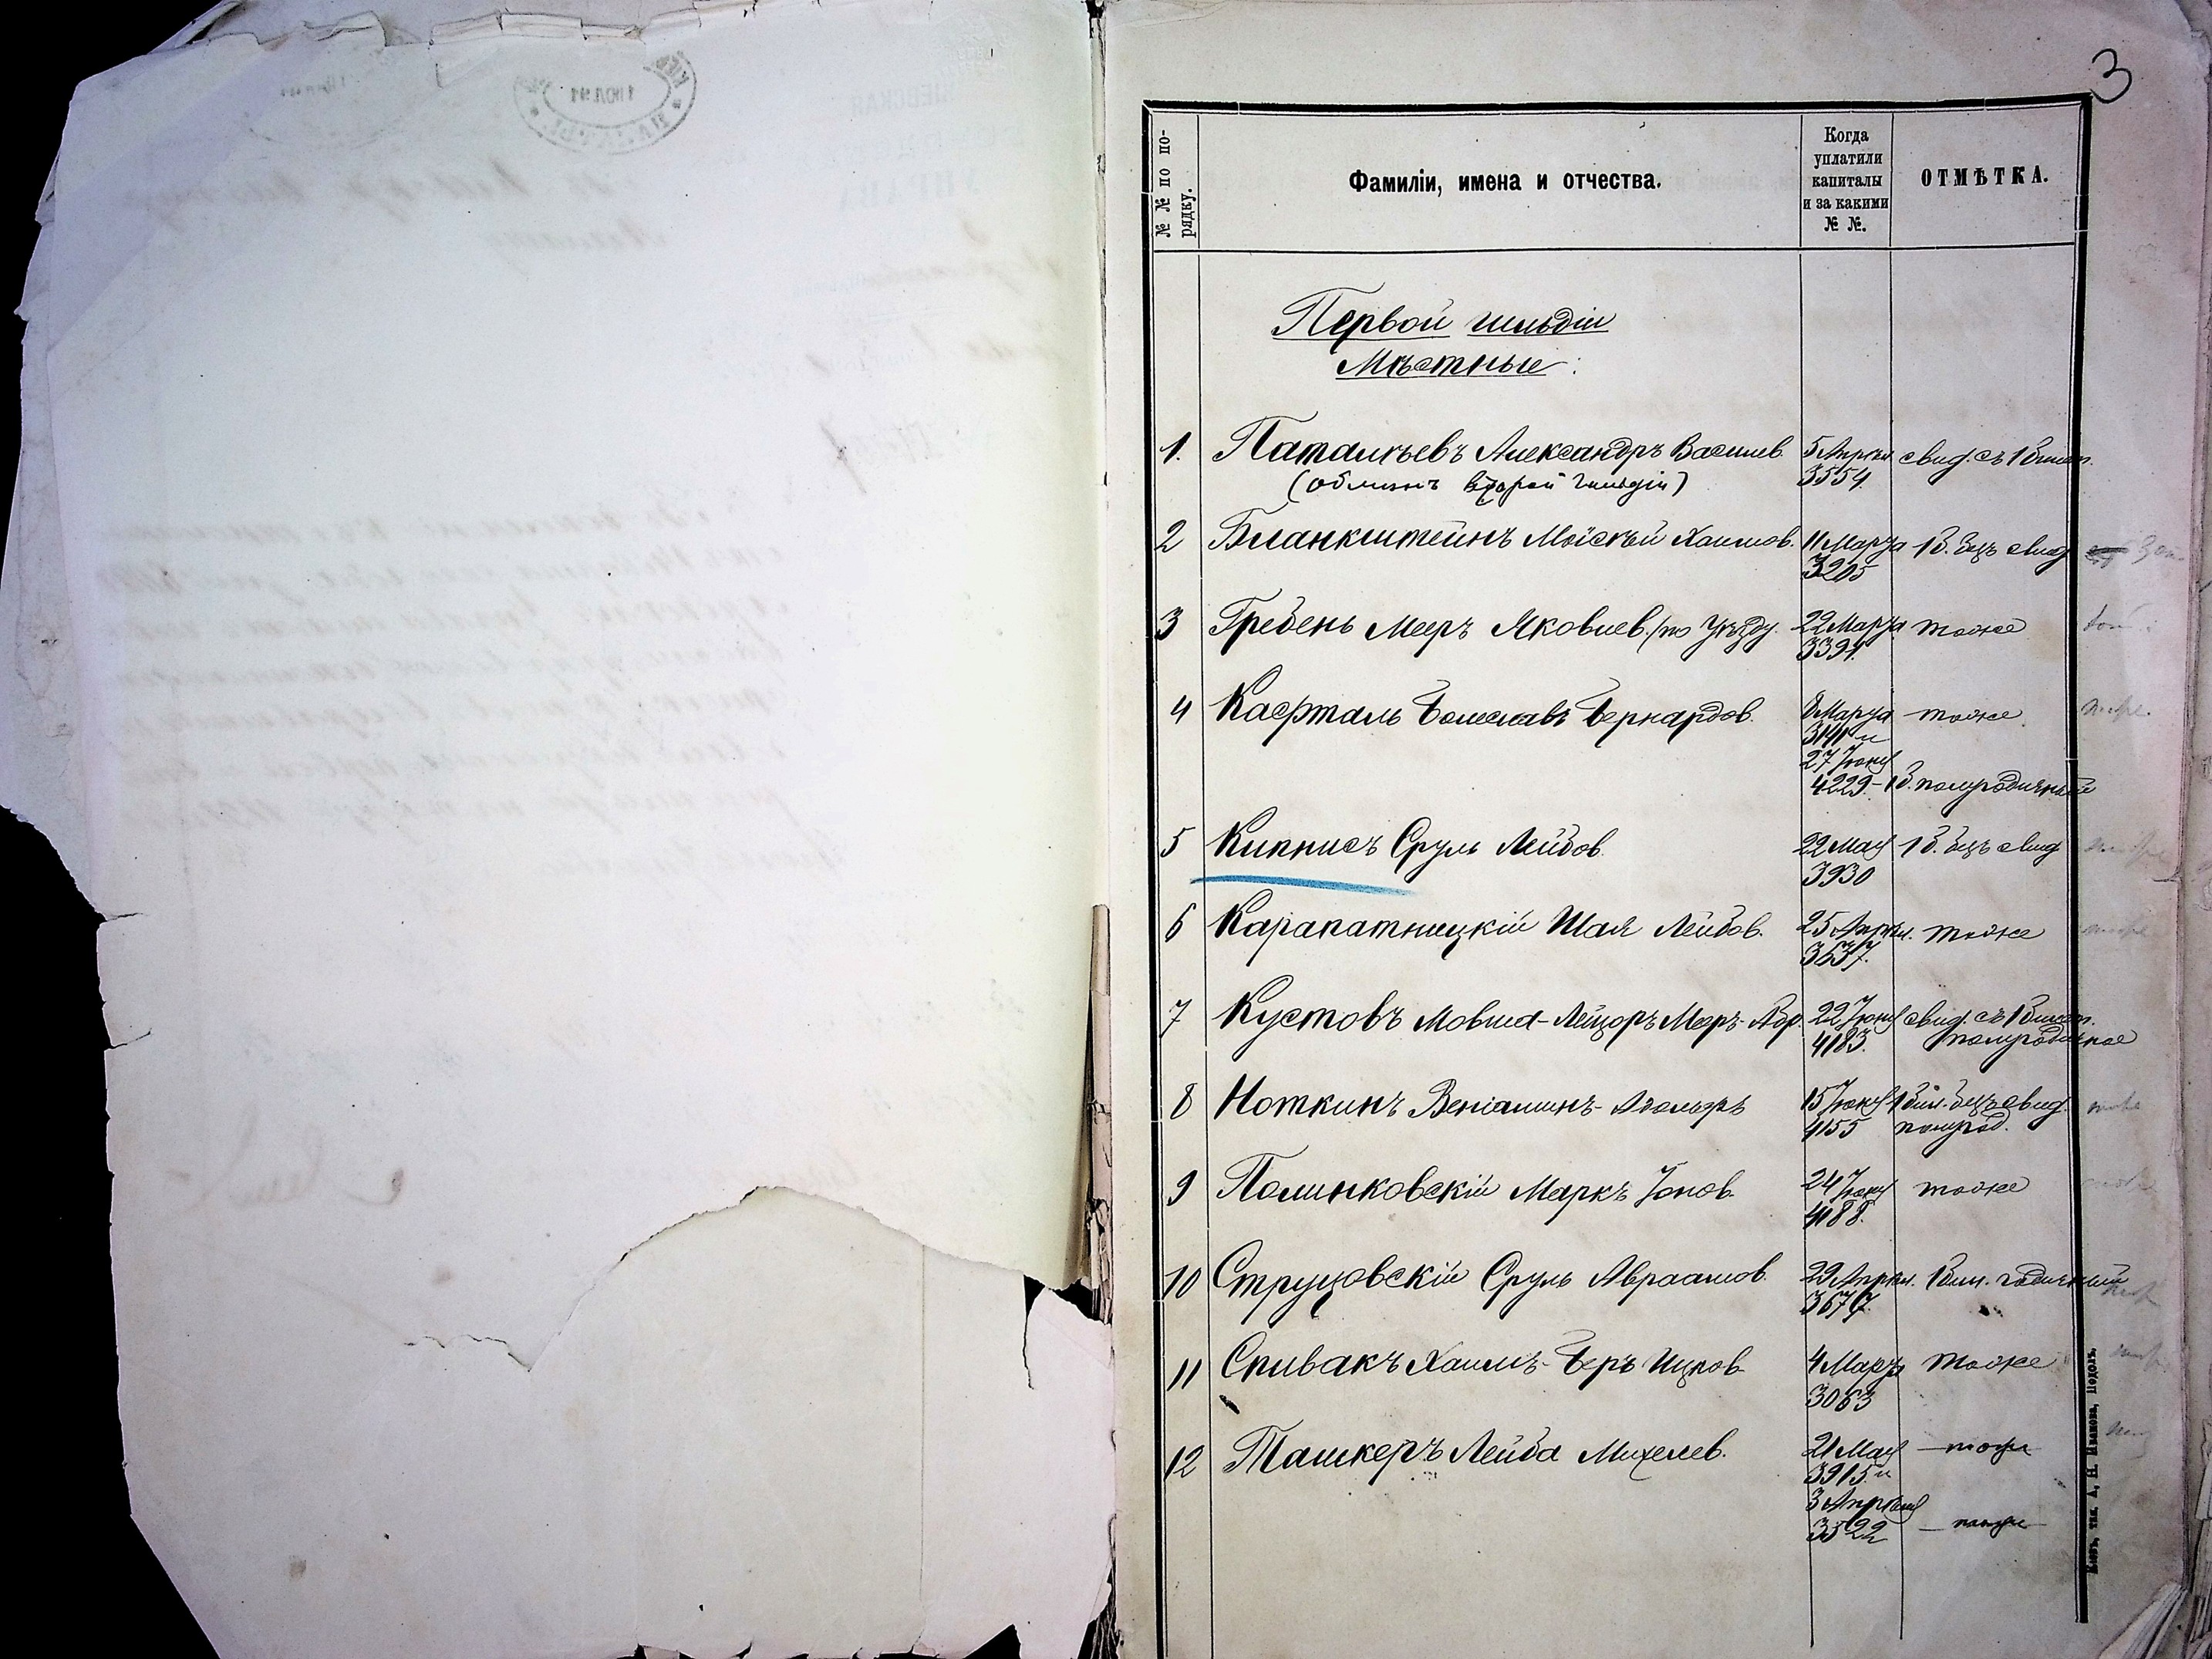 3
№ № по по-
рядку.
Фамиліи, имена и отчества.
Когда
уплатили
капиталы
и за какими
№ №.
ОТМѢТКА.
Первой гильдіи
Мѣстные:
1. Паталѣевъ Александръ Васильев. 5 Апрѣля свид. съ 1 билет.
(обмѣнъ второй гильдіи) 3554
2 Бланкштейнъ Моісѣй Хаимов. 11 Марта 1 б. безъ свид.
3205
3 Гребень Мееръ Яковлев. (по Уѣзду. 22 Марта тоже
3391.
4 Кафталь Болеславъ Бернардов. 8 Марта тоже
3141 и
27 Іюня
4229 - 1 б. полугодичный
5 Кипнисъ Сруль Лейбов. 22 Мая 1 б. безъ свид
3930
6 Карапатницкій Шая Лейбов. 25 Апрѣл. тоже
3637.
7 Кустовъ Мовша-Лейзоръ Мор. 22 Іюня свид. съ 1 билет.
4183. полугодичное
8 Ноткинъ Веніаминъ-Адольфъ 15 Іюня 1 бил. безъ свид.
4155 полугод.
9 Полинковскій Маркъ Іонов. 24 Іюня тоже
4188.
10 Струцовскій Сруль Авраамов. 29 Апрѣл. 1 бил. годичный
3677.
11 Спивакъ Хаимъ-Беръ Ицков 4 Марта тоже
3063
12 Ташкеръ Лейба Михелев. 21 Мая — тоже
3915 и
3 Апрѣля
3522
Кіевъ, тип. А, Н. Иванова, Подолъ.